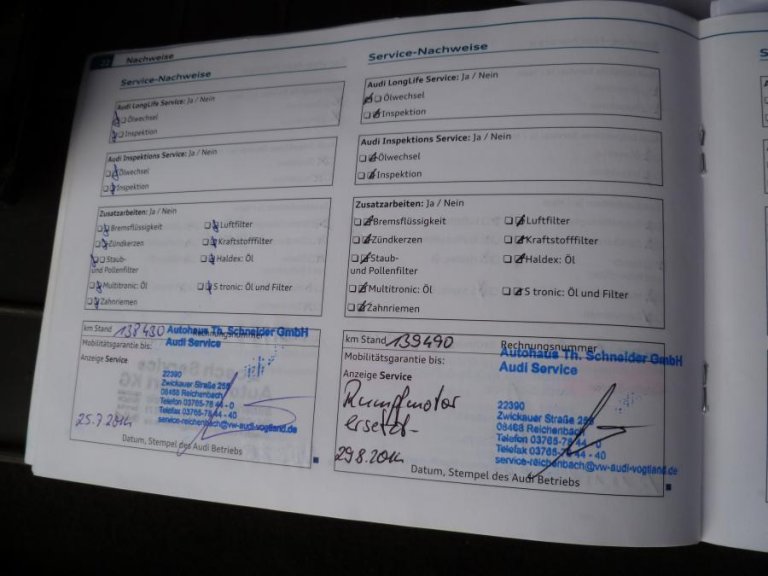 22 Nachweise
Service-Nachweise
Audi LongLife Service: Ja / Nein
Ölwechsel
Inspektion
Audi Inspektions Service: Ja / Nein
Ölwechsel
Inspektion
Zusatzarbeiten: Ja / Nein
Bremsflüssigkeit
Luftfilter
Zündkerzen
Kraftstofffilter
Staub-
und Pollenfilter
Haldex: Öl
Multitronic: Öl
S tronic: Öl und Filter
Zahnriemen
km Stand 138430
Rechnungsnummer
Autohaus Th. Schneider GmbH
Audi Service
Mobilitätsgarantie bis:
Anzeige Service
22390
Zwickauer Straße 255
08468 Reichenbach
Telefon 03765-78 44 - 0
Telefax 03765-78 44 - 40
service-reichenbach@vw-audi-vogtland.de
25.7.2014
Datum, Stempel des Audi Betriebs
Service-Nachweise
Audi LongLife Service: Ja / Nein
Ölwechsel
Inspektion
Audi Inspektions Service: Ja / Nein
Ölwechsel
Inspektion
Zusatzarbeiten: Ja / Nein
Bremsflüssigkeit
Luftfilter
Zündkerzen
Kraftstofffilter
Staub-
und Pollenfilter
Haldex: Öl
Multitronic: Öl
S tronic: Öl und Filter
Zahnriemen
km Stand 139490
Rechnungsnummer
Autohaus Th. Schneider GmbH
Audi Service
Mobilitätsgarantie bis:
Anzeige Service
Rumpfmotor
ersetzt.
22390
Zwickauer Straße 255
08468 Reichenbach
Telefon 03765-78 44 - 0
Telefax 03765-78 44 - 40
service-reichenbach@vw-audi-vogtland.de
29.8.2014
Datum, Stempel des Audi Betriebs